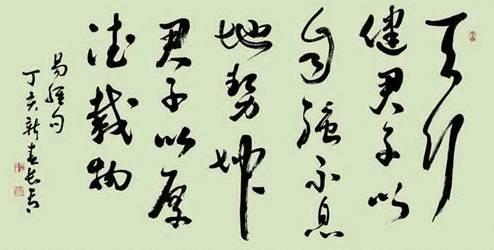 天行
健君子以
自强不息
地势坤
君子以厚
德载物
易经句
丁亥新春